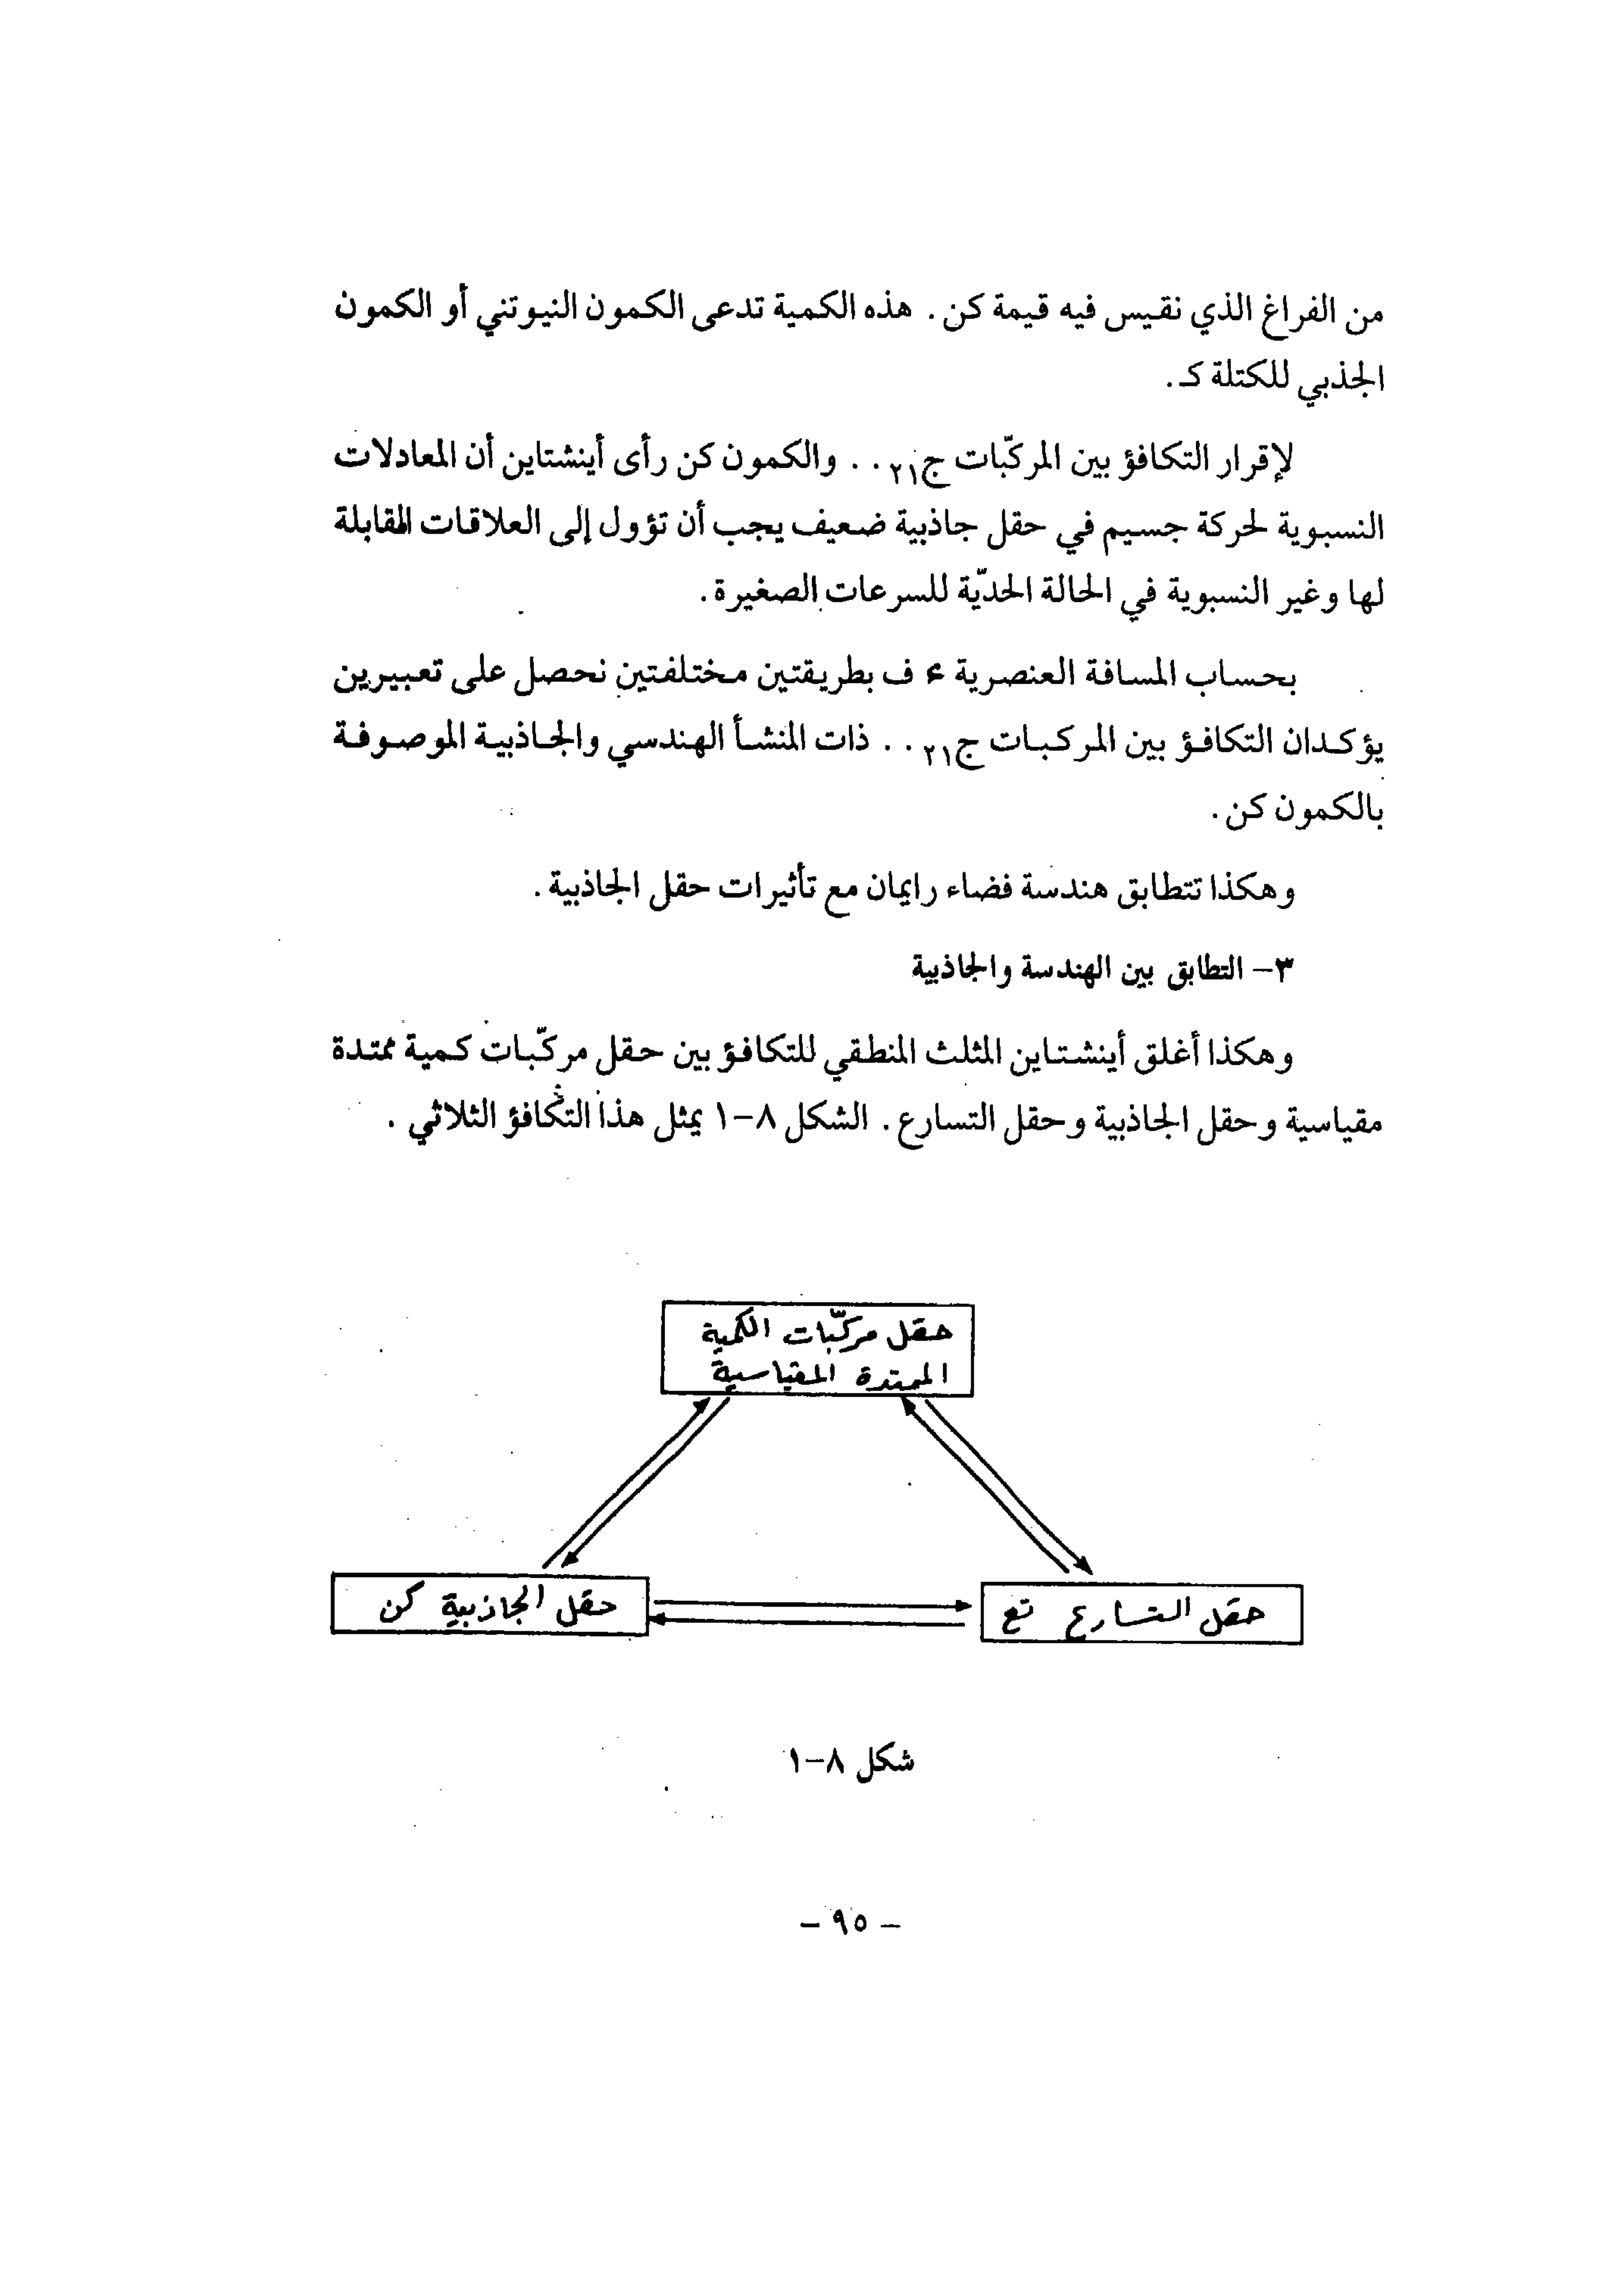 من الفراغ الذي نقيس فيه قيمة كن. هذه الكمية تدعى الكمون النيوتني أو الكمون
الجذبي للكتلة كـ.
لإقرار التكافؤ بين المركّبات ج٢١.. والكمون كن رأى أينشتاين أن المعادلات
النسبوية لحركة جسيم في حقل جاذبية ضعيف يجب أن تؤول إلى العلاقات المقابلة
لها وغير النسبوية في الحالة الحدّية للسرعات الصغيرة.
بحساب المسافة العنصرية ء ف بطريقتين مختلفتين نحصل على تعبيرين
يؤكدان التكافؤ بين المركبات ج٢١.. ذات المنشأ الهندسي والجاذبية الموصوفة
بالكمون كن.
وهكذا تتطابق هندسة فضاء رايمان مع تأثيرات حقل الجاذبية.
٣- التطابق بين الهندسة والجاذبية
وهكذا أغلق أينشتاين المثلث المنطقي للتكافؤ بين حقل مركّبات كمية ممتدة
مقياسية وحقل الجاذبية وحقل التسارع. الشكل ٨-١ يمثل هذا التكافؤ الثلاثي.
حقل مركّبات الكمية
الممتدة المقياسية
حقل التسارع تع
حقل الجاذبية كن
شكل ٨-١
- ٩٥ -